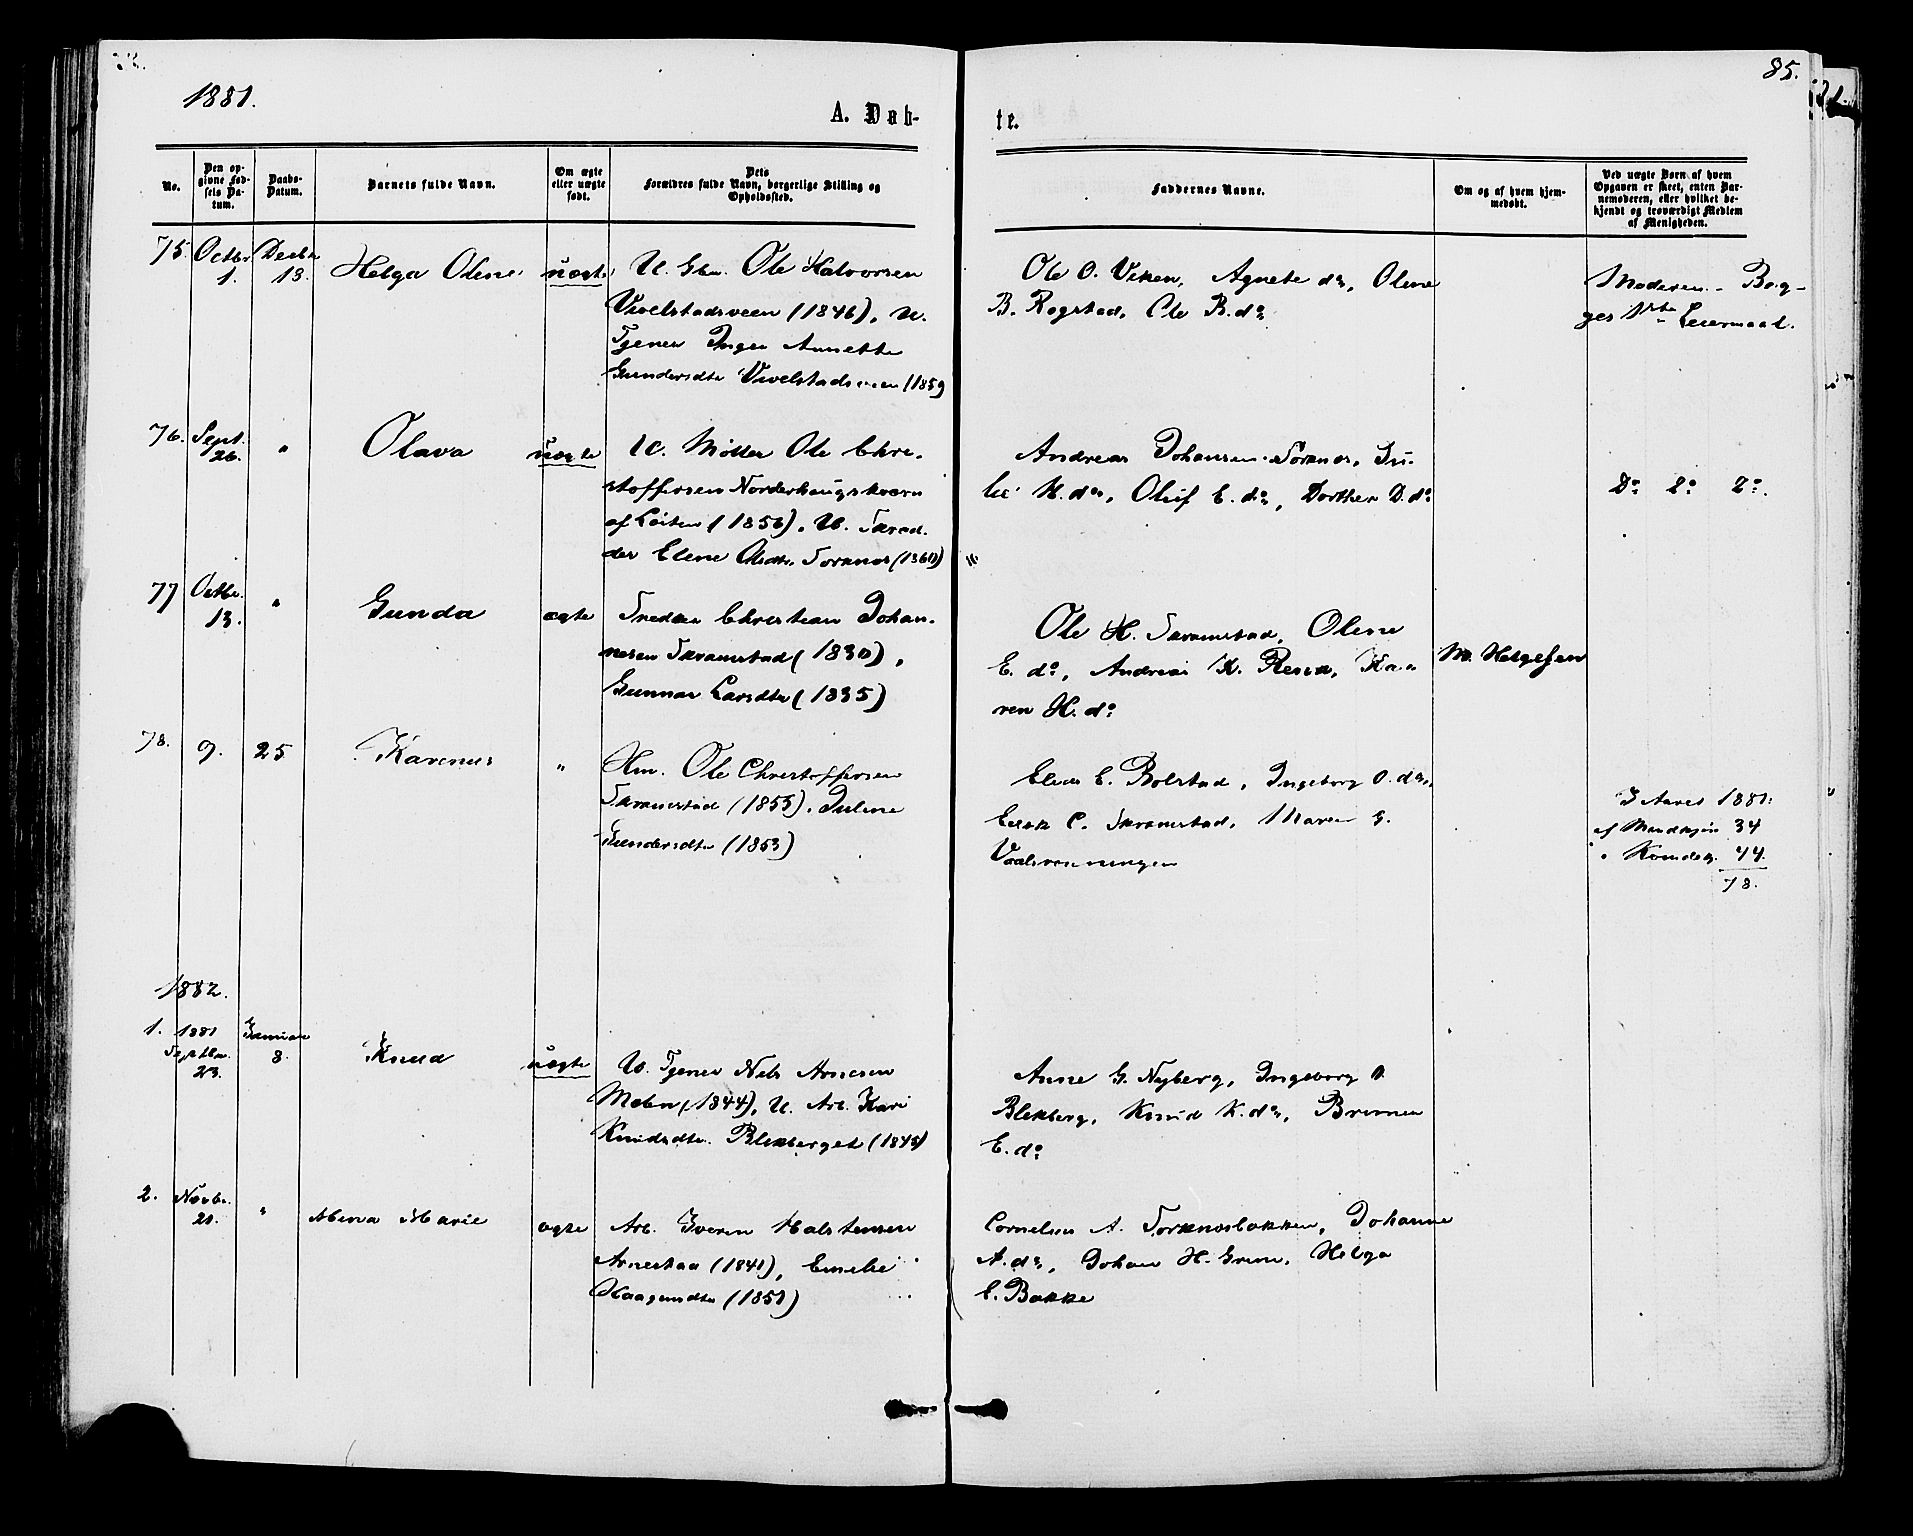 85.
1881.
A. Døb-
te.
No.
Den op-
givne Fød-
sels Da-
tum.
Daabs-
Datum.
Barnets fulde Navn.
Om ægte
eller uægte
født.
Dets
Forældres fulde Navn, borgerlige Stilling og
Opholdssted.
Faddernes Navne.
Om og af hvem hjem-
medøbt.
Ved uægte Børn af hvem
Opgaven er skeet, enten Bar-
nemoderen, eller hvilket be-
kjendt og troværdigt Medlem
af Menigheden.
75.
Octbr
1.
Decbr
13.
Helga Oline
uægte
U. Gbr. Ole Halvorsen
Vivelstadsveen (1846), U.
Tjener Inger Annette
Gundersdtr Vivelstadsveen (1859
Ole O. Viken, Agnete do, Oline
B. Rogstad, Ole B. do
Moderen - Beg-
ges 1ste Leiermaal.
76.
Sept.
26.
"
Olava
uægte
U. Møller Ole Chri-
stoffersen Norderhaugskværn
af Løiten (1856), U.
Elene Olsdtr. Torknes (1860)
Andreas Johansen Torknes, Ju-
lie H. do, Oluf E. do, Dorthea D. do
Do Do Do.
77
Octbr.
13.
"
Gunda
ægte
Christian Johan-
nesen Skramstad (1830),
Gunnor Larsdtr (1835)
Ole H. Skramstad, Oline
E. do, Andreas K. Rena, Ka-
ren H. do
M. Helgesen
78.
9.
25
Karenus
"
Hm. Ole Christoffersen
Skramstad (1855), Juline
Gundersdtr (1853)
Elias E. Bolstad, Ingeborg O. do,
Eirik C. Skramstad, Maren G.
I Aaret 1881:
af Mandkjøn 34
" Kvindek. 44.
78.
1882.
1.
1881
Septbr.
23.
Januar
8.
Knud
uægte
U. Tjener Nils Arnesen
Moen (1844), U. Arb. Kari
Knudsdtr. Blekberget (1845)
Anne G. Nyberg, Ingeborg O
Blekberg, Knud K. do,
E. do
2.
Novbr.
21.
"
Mina Marie
ægte
Arb. Iveren Halstensen
Arnestad (1841), Emelie
Haagensdtr (1851)
Cornelius A. Torknesbakken, Johanne
A. do, Johan H. Grini, Helga
E. Bakke